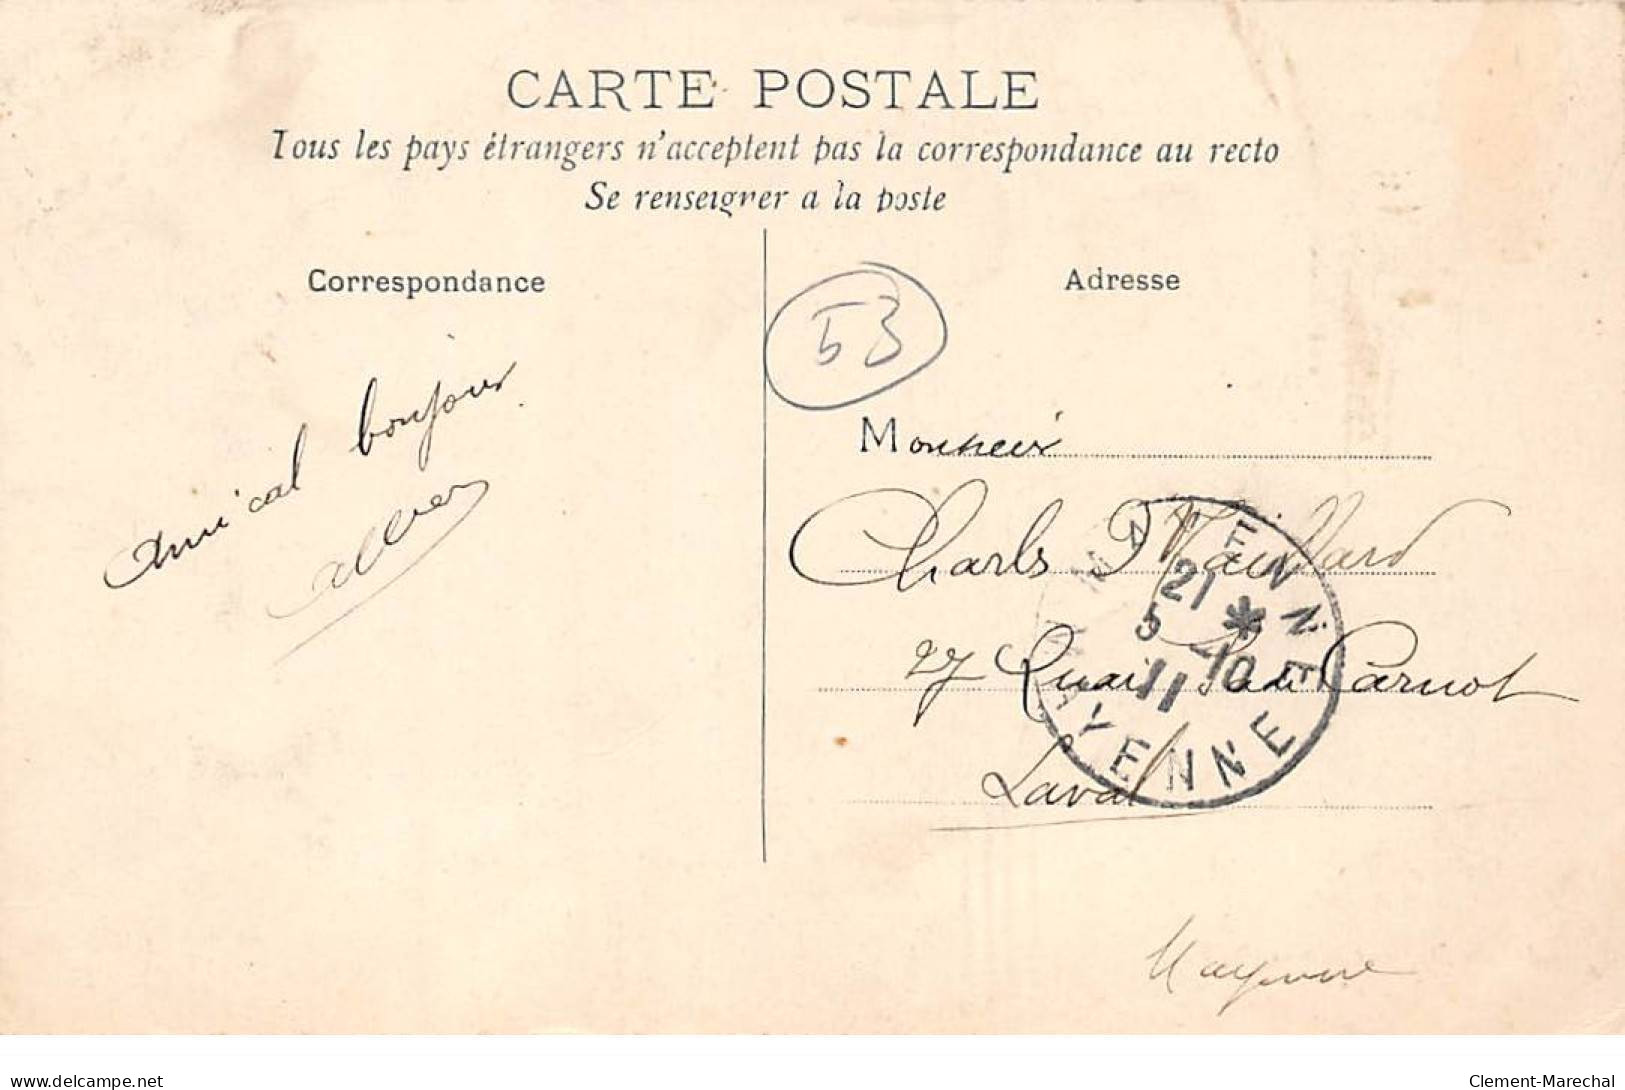 CARTE POSTALE
Tous les pays étrangers n'acceptent pas la correspondance au recto
Se renseigner a la poste
Correspondance
Adresse
53
amical bonjour
Monsieur
Charles Maillard
27 Quai Sadi Carnot
Laval
MAYENNE
21 *
5 -10
11
MAYENNE
Mayenne
delcampe.net
Clement-Marechal